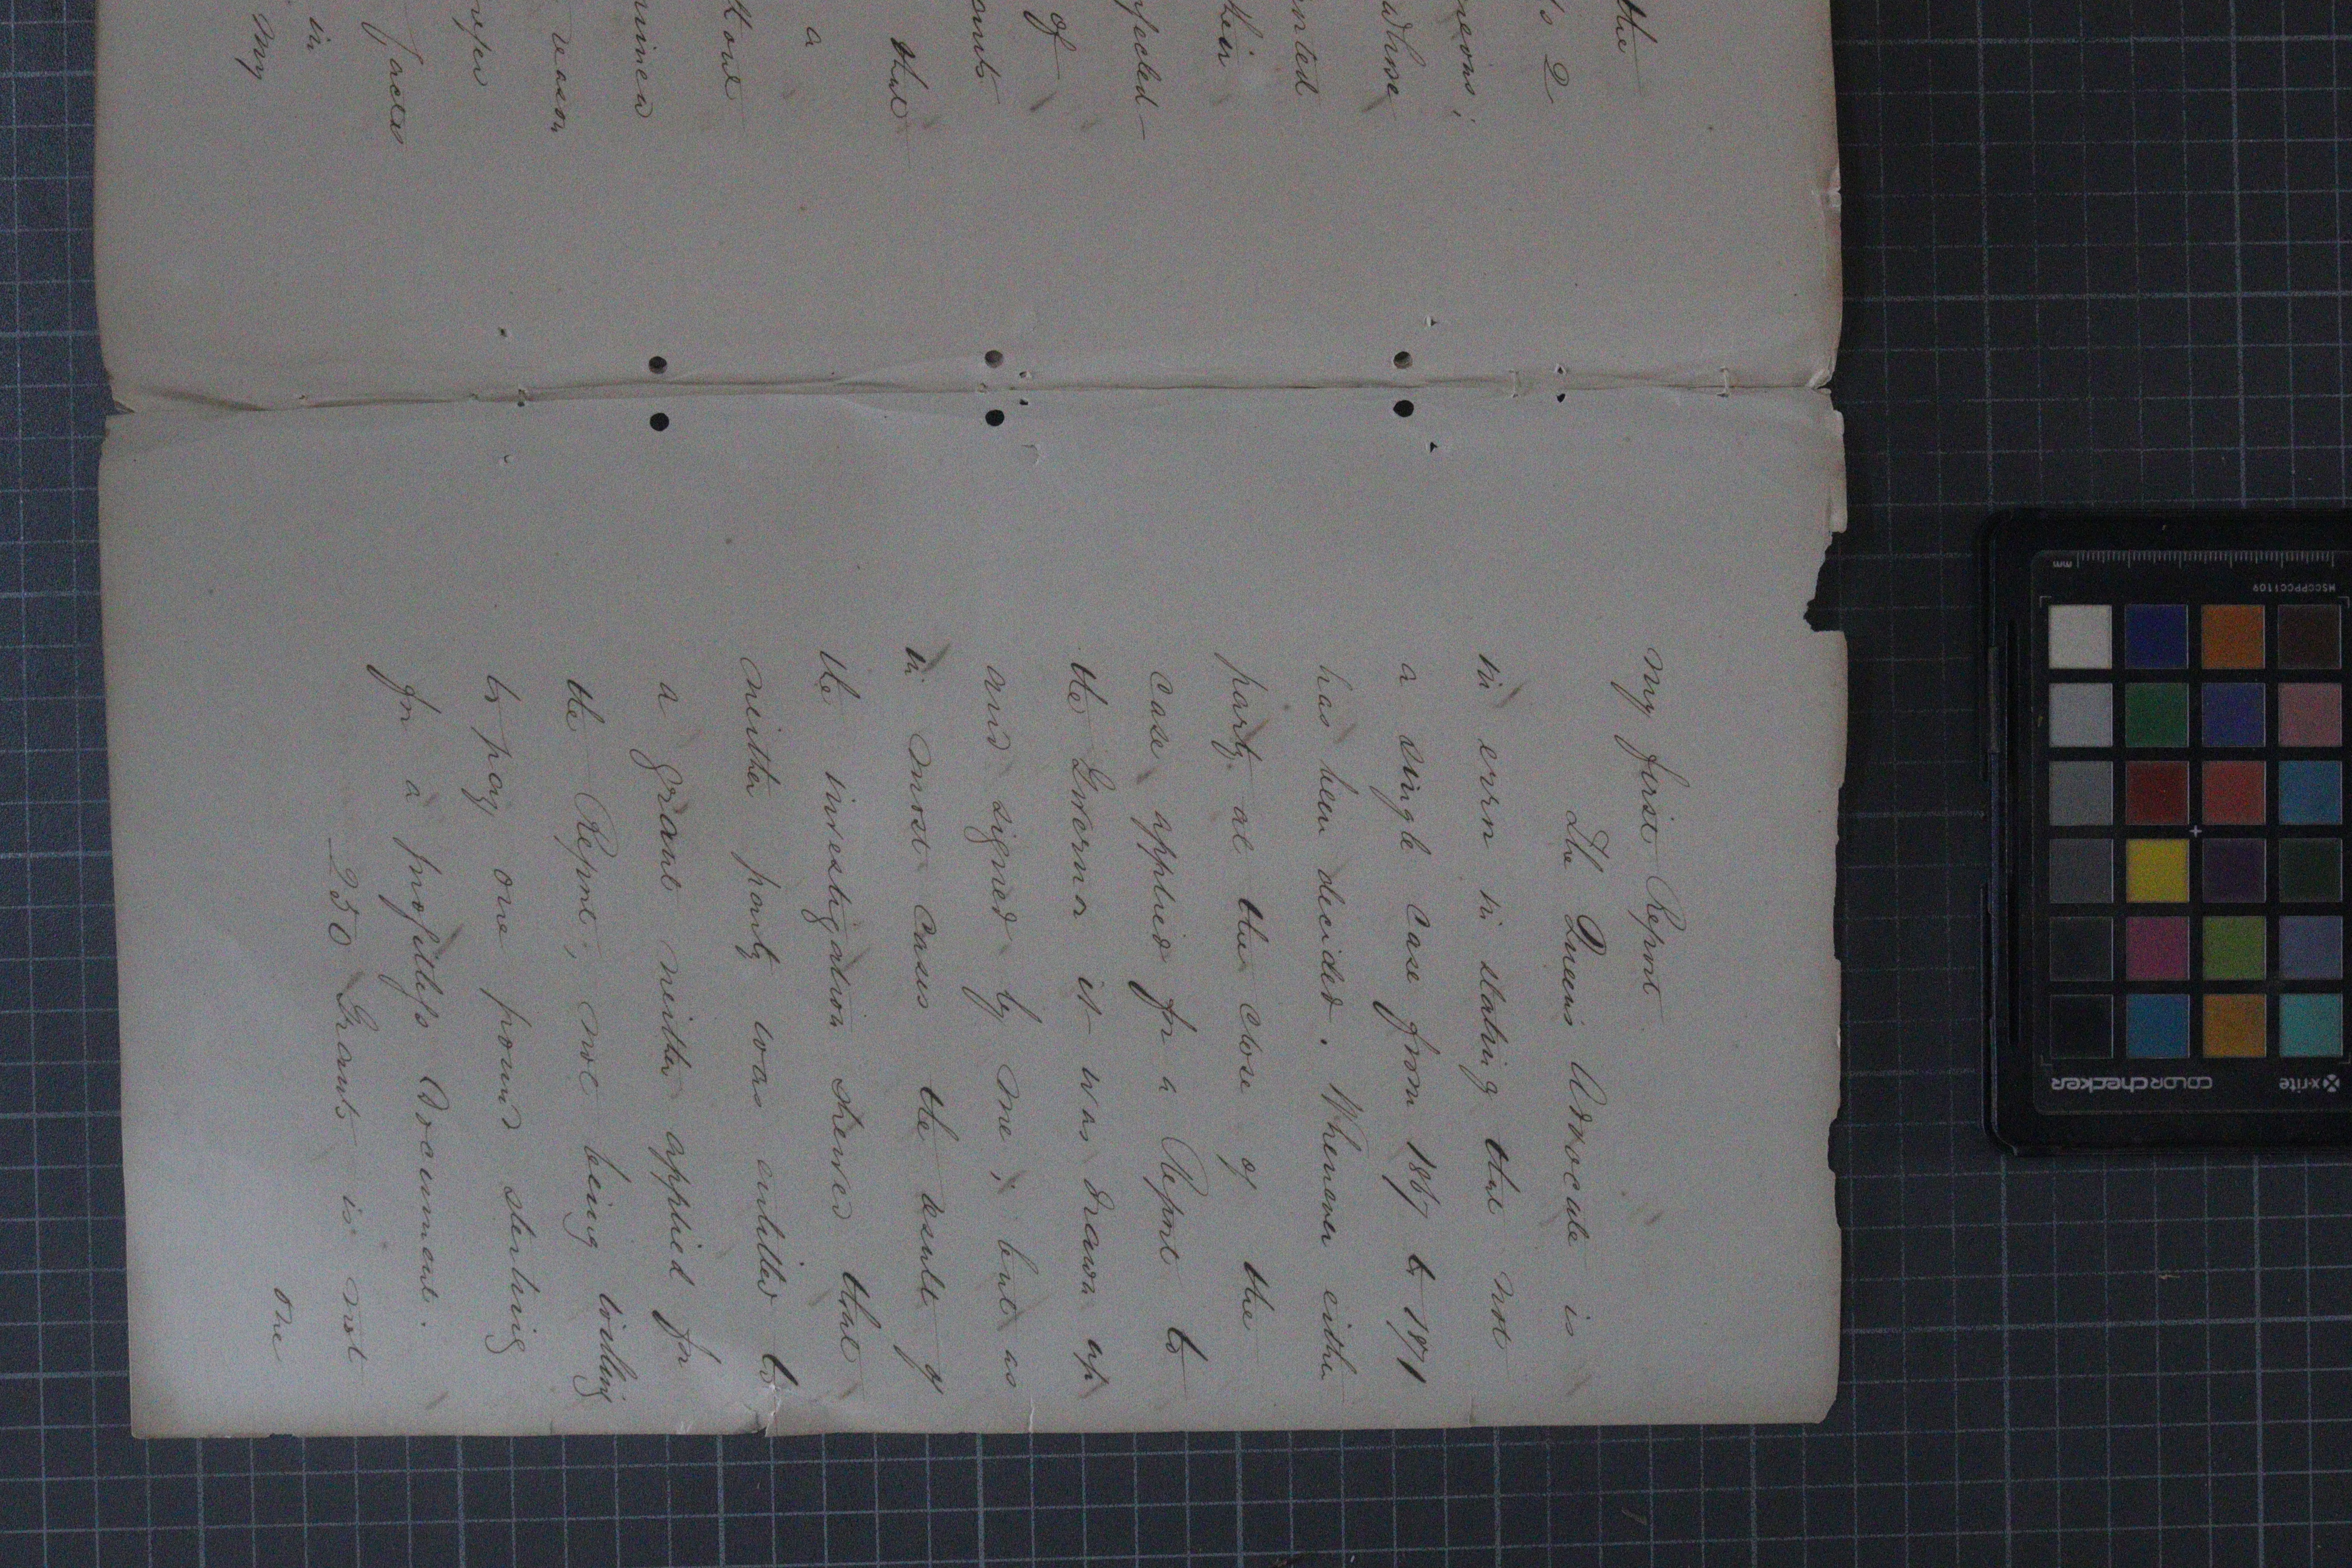 the
to 2
whose
their
of
that
a
reason
facts
in
my
my first Report
The Queens Advocate is
in error in stating that not
a single case from 1867 to 1871
has been decided. Whenever either
party at the close of the
case applied for a Report to
the Governor it was drawn up
and signed by me; but as
in most cases the result of
the investigation shewed that
neither party was entitled to
a grant neither applied for
the Report, not being willing
to pay one pound sterling
for a profitless document.
250 Grants is not
one
mm
MSCCPPCC1109
x-rite
colorchecker